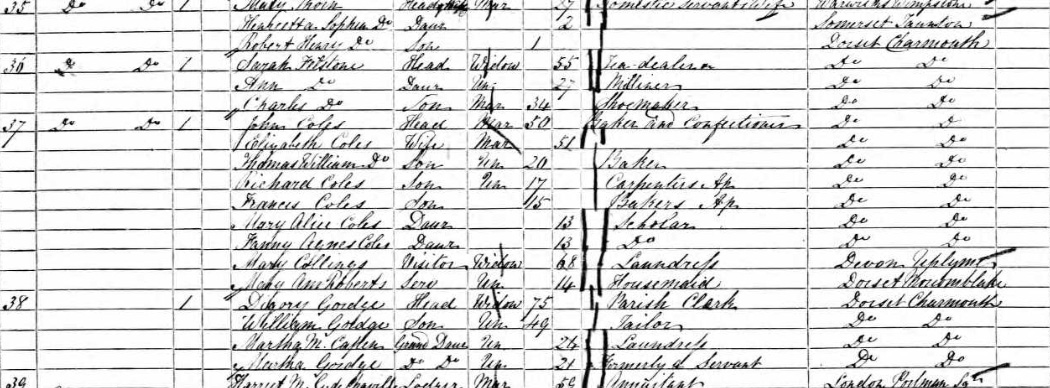 35 Do Do 1 Head Mar 27 Domestic Servant's Wife Warwicks
Henrietta Sophia Do Daur 2 Somerset Taunton
Robert Henry Do Son 1 Dorset Charmouth
36 Do Do 1 Sarah Head Widow 55 Tea dealer Do Do
Ann Do Daur Un 27 Milliner Do Do
Charles Do Son Mar 34 Shoemaker Do Do
37 Do Do 1 John Coles Head Mar 50 Baker and Confectioner Do D
Elizabeth Coles Wife Mar 51 Do Do
Thomas William Do Son Un 20 Baker Do Do
Richard Coles Son Un 17 Carpenters Ap Do Do
Francis Coles Son 15 Bakers Ap Do Do
Mary Alice Coles Daur 13 Scholar Do Do
Fanny Agnes Coles Daur 13 Do Do Do
Mary Collings Visitor Widow 68 Laundress Devon Uplyme
Mary Ann Roberts Serv Un 14 Housemaid Dorset
38 1 Head Widow 75 Parish Clark Dorset Charmouth
William Son Un 49 Tailor Do Do
Martha M. Grand Daur Un Laundress Do Do
Martha Do Do Un 21 Formerly a Servant Do Do
39 Harriet M. Lodger Mar 59 Annuitant London Portman Sqr